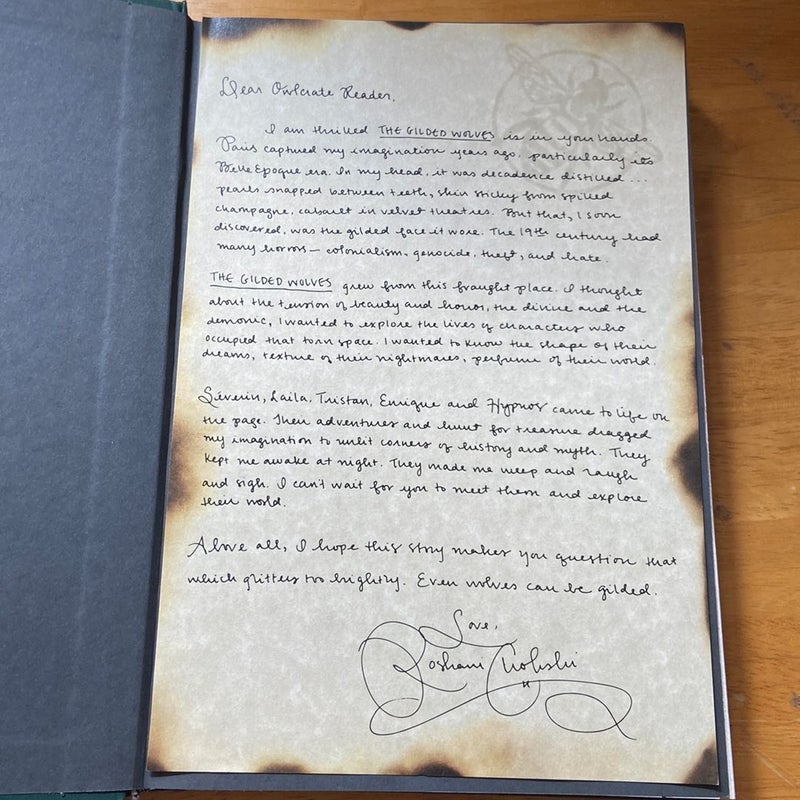 Dear Owlcrate Reader,
I am thrilled THE GILDED WOLVES is in your hands.
Paris captured my imagination years ago, particularly its
Belle Epoque era. In my head, it was decadence distilled...
pearls snapped between teeth, skin sticky from spilled
champagne, cabaret in velvet theatres. But that, I soon
discovered, was the gilded face it wore. The 19th century had
many horrors – colonialism, genocide, theft, and hate.
THE GILDED WOLVES grew from this fraught place. I thought
about the tension of beauty and horror, the divine and the
demonic, I wanted to explore the lives of characters who
occupied that torn space. I wanted to know the shape of their
dreams, texture of their nightmares, perfume of their world.
Séverin, Laila, Tristan, Enrique and Hypnos came to life on
the page. Their adventures and hunt for treasure dragged
my imagination to unlit corners of history and myth. They
kept me awake at night. They made me weep and laugh
and sigh. I can't wait for you to meet them and explore
their world.
Above all, I hope this story makes you question that
which glitters too brightly. Even wolves can be gilded.
Love,
Roshani Chokshi